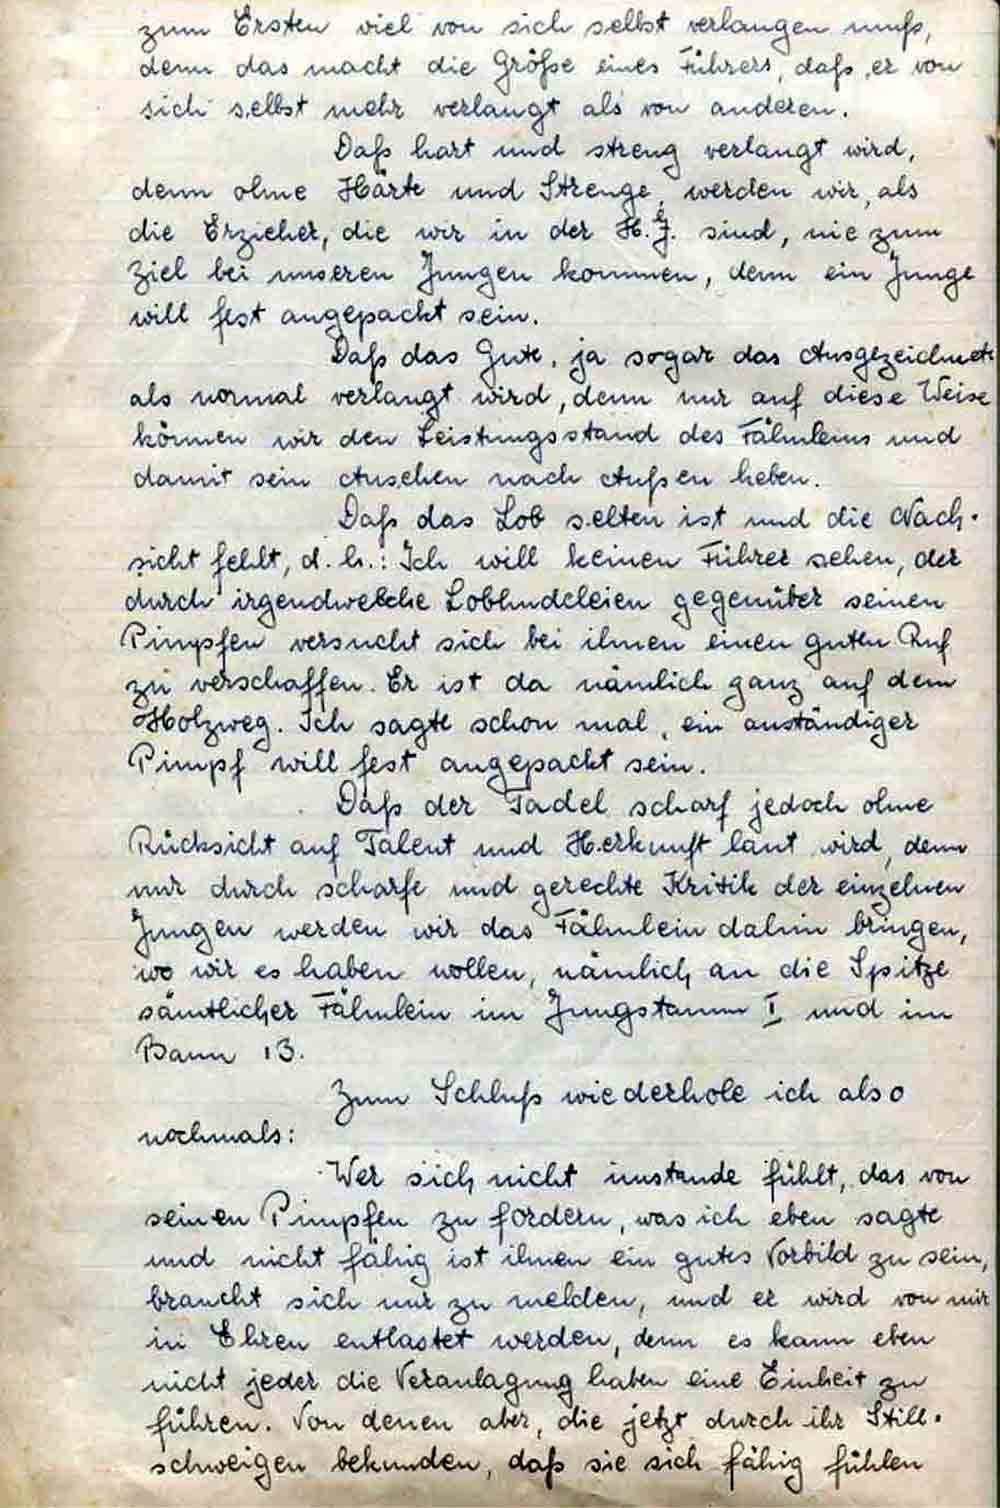 zum Ersten viel von sich selbst verlangen muß,
denn das macht die Größe eines Führers, daß er von
sich selbst mehr verlangt als von anderen.
Daß hart und streng verlangt wird,
denn ohne Härte und Strenge, werden wir, als
die Erzieher, die wir in der H.J. sind, nie zum
Ziel bei unseren Jungen kommen, denn ein Junge
will fest angepackt sein.
Daß das Gute, ja sogar das Ausgezeichnete
als normal verlangt wird, denn nur auf diese Weise
können wir den Leistungsstand des Fähnleins und
damit sein Ansehen nach Außen heben.
Daß das Lob selten ist und die Nach-
sicht fehlt, d.h.: Ich will keinen Führer sehen, der
durch irgendwelche Lobhudeleien gegenüber seinen
Pimpfen versucht sich bei ihnen einen guten Ruf
zu verschaffen. Er ist da nämlich ganz auf dem
Holzweg. Ich sagte schon mal, ein anständiger
Pimpf will fest angepackt sein.
Daß der Tadel scharf jedoch ohne
Rücksicht auf Talent und Herkunft laut wird, denn
nur durch scharfe und gerechte Kritik der einzelnen
Jungen werden wir das Fähnlein dahin bringen,
wo wir es haben wollen, nämlich an die Spitze
sämtlicher Fähnlein im Jungstamm I und im
Bann 13.
Zum Schluß wiederhole ich also
nochmals:
Wer sich nicht imstande fühlt, das von
seinen Pimpfen zu fordern, was ich eben sagte
und nicht fähig ist ihnen ein gutes Vorbild zu sein,
braucht sich nur zu melden, und er wird von mir
in Ehren entlastet werden, denn es kann eben
nicht jeder die Veranlagung haben eine Einheit zu
führen. Von denen aber, die jetzt durch ihr Still-
schweigen bekunden, daß sie sich fähig fühlen